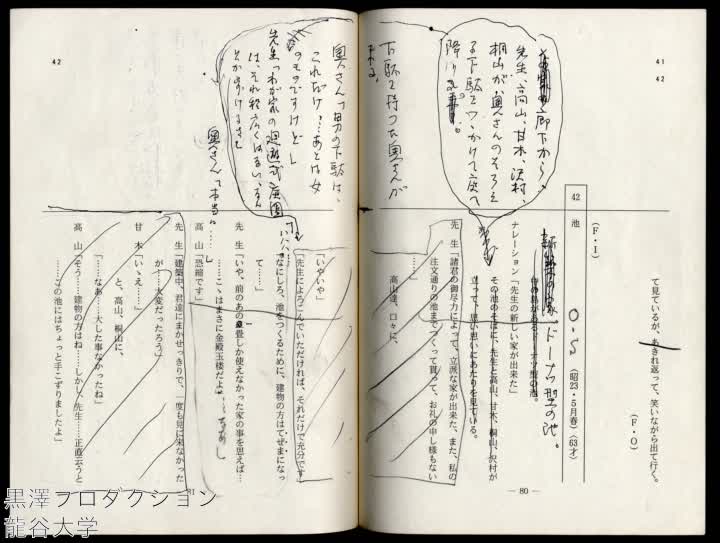 41
42
て見ているが、あきれ返って、笑いながら出て行く。
(F・O)
(F・I)
42 池 O.S (昭23・5月春)(63才)
新築の家、ドーナツ型の池。
中の島があるドーナツ型の池。
ナレーション「先生の新しい家が出来た」
その池のそばに、先生と高山、甘木、桐山、沢村が
立って、思い思いにあたりを見ている。
先 生「諸君の御尽力によって、立派な家が出来た、また、私の
注文通りの池までつくって貰って、お礼の申し様もない
高山達、口々に、
廊下から、
先生、高山、甘木、沢村、
桐山が、奥さんのそろえ
る下駄をつっかけて庭へ
降りる。
下駄を持った奥さんが
― 80 ―
42
奥さん「男の下駄は、
これだけ……あとは女
のものですけど」
先生「わが家の廻遊式庭園
は、それ程広くはない、
奥さん「本当に
「いやいや」
「先生によろこんでいただければ、それだけで充分です」
「なにしろ、池をつくるために、建物の方はてぜまになっ
て……」
先 生「いや、前のあの三畳しか使えなかった家の事を思えば…
……こゝはまさに金殿玉楼だよ」
高 山「恐縮です」
先 生「建築中、君達にまかせっきりで、一度も見に来なかった
が……大変だったろう」
甘 木「いゝえ……」
と、高山、桐山に、
「……なあ……大した事なかったね」
高 山「そう……建物の方はね……しかし、先生……正直云うと
……この池にはちょっと手こずりましたよ」
81
黒澤プロダクション
龍谷大学